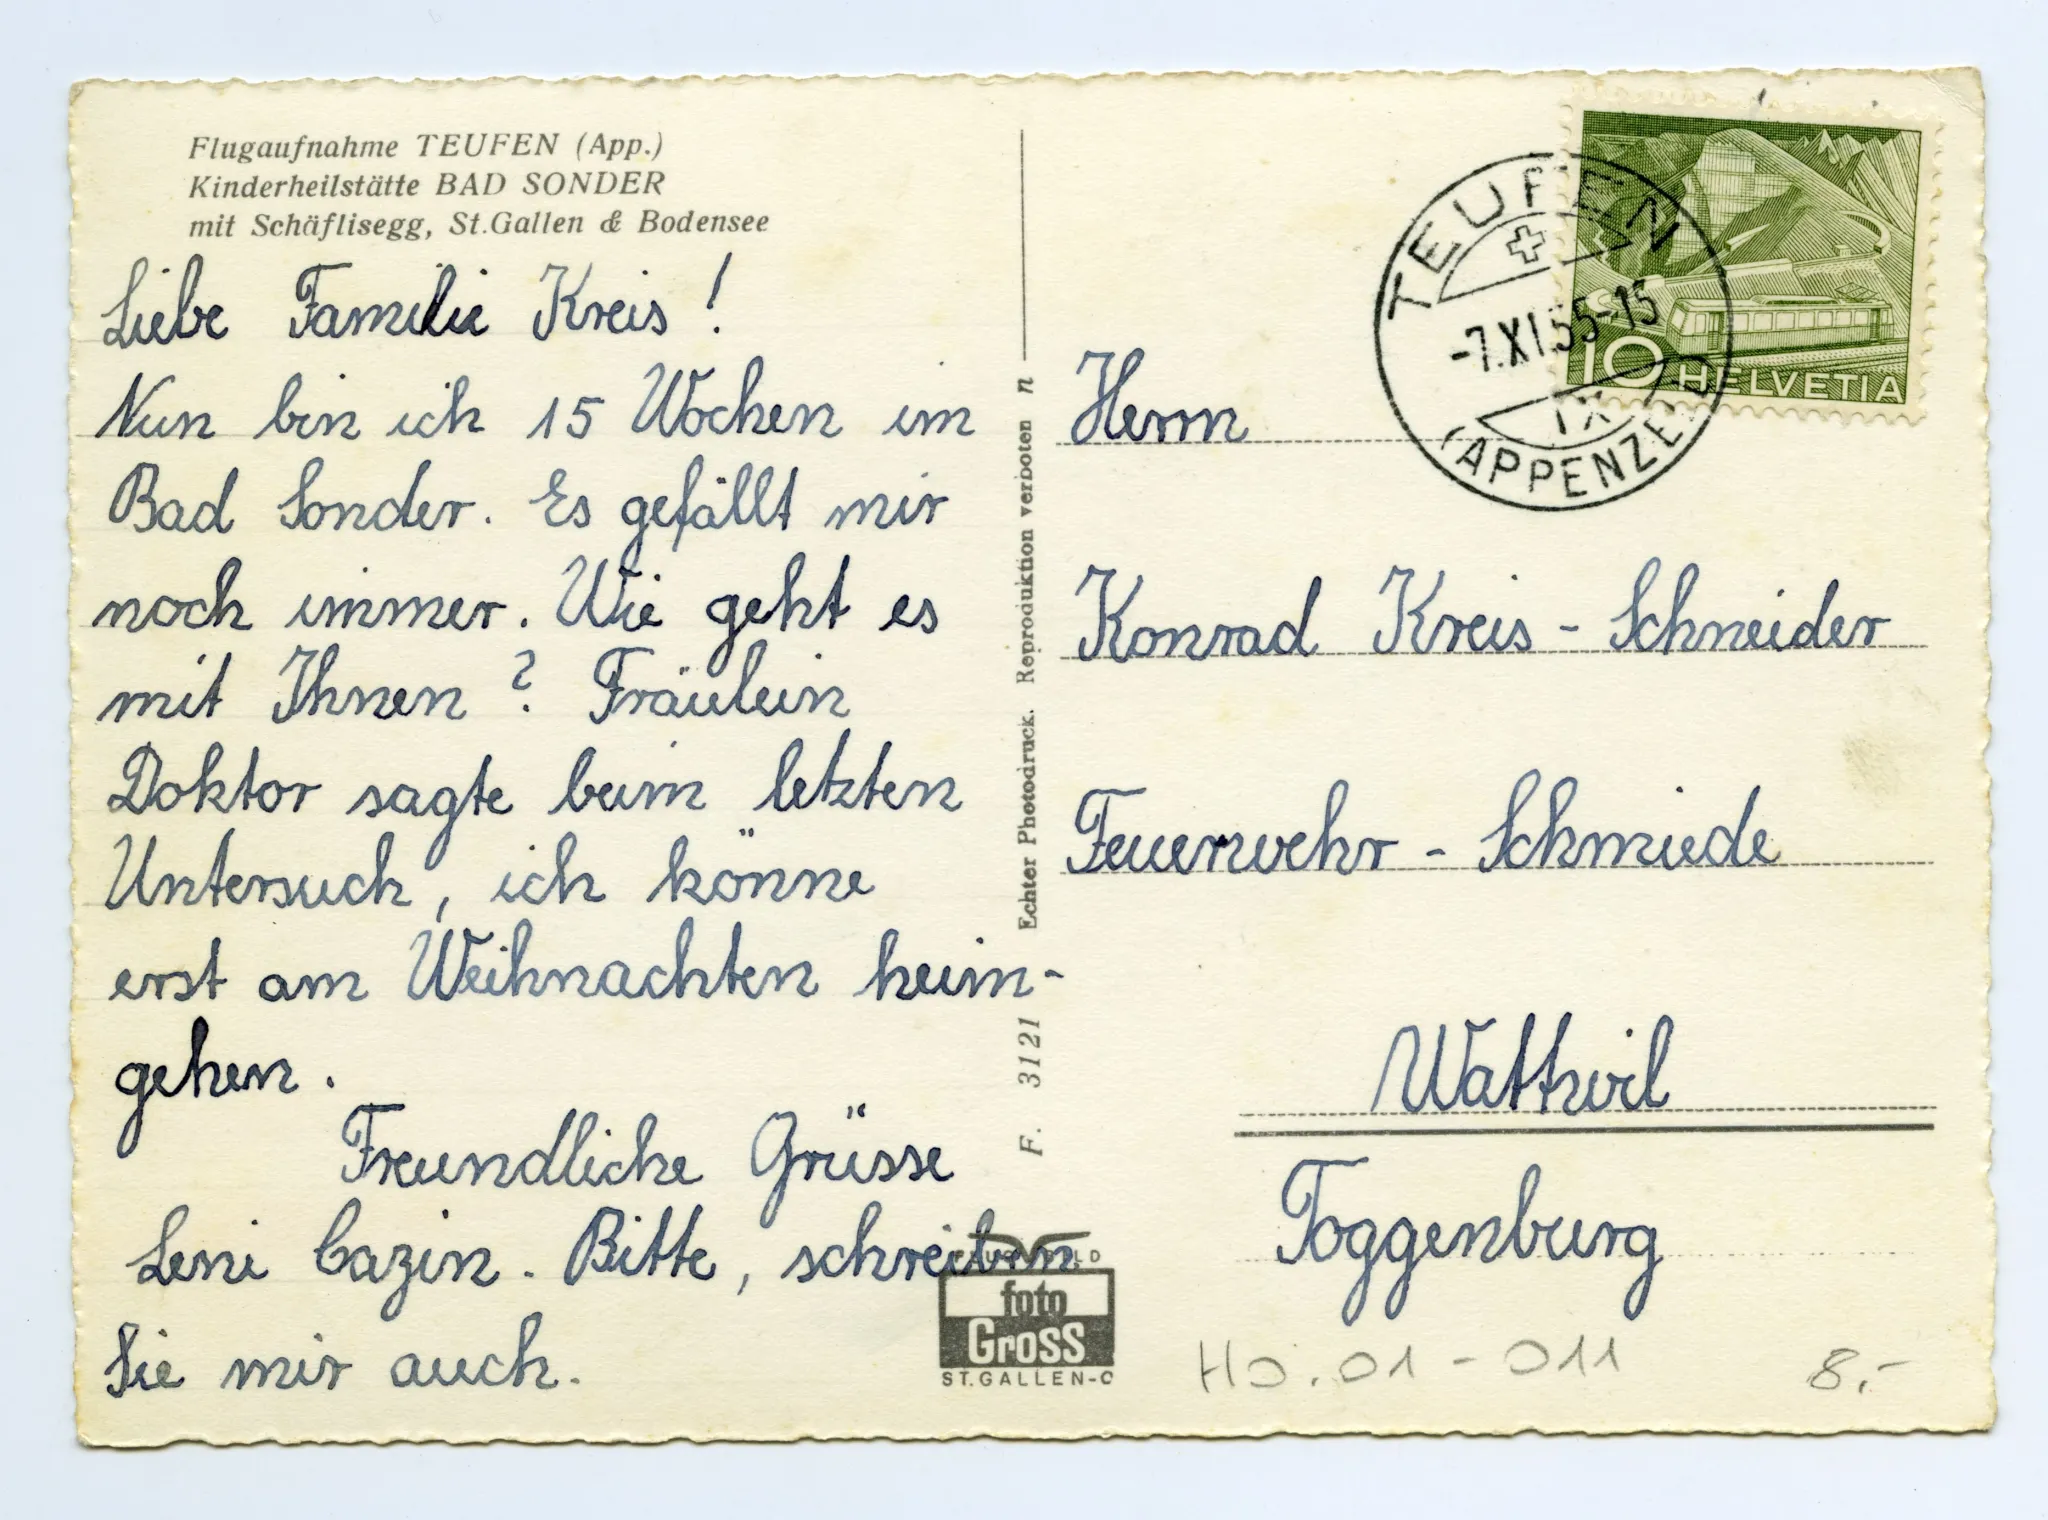 Flugaufnahme TEUFEN (App.)
Kinderheilstätte BAD SONDER
mit Schäflisegg, St.Gallen & Bodensee
Liebe Familie Kreis !
Nun bin ich 15 Wochen im
Bad Sonder. Es gefällt mir
noch immer. Wie geht es
mit Ihnen ? Fräulein
Doktor sagte beim letzten
Untersuch, ich könne
erst am Weihnachten heim-
gehen.
Freundliche Grüsse
Leni Cazin. Bitte, schreiben
Sie mir auch.
F. 3121 Echter Photodruck. Reproduktion verboten n
foto
Gross
ST.GALLEN-O
TEUFEN
-7.XI.55-15
IX
(APPENZELL)
10 HELVETIA
Herrn
Konrad Kreis - Schneider
Feuerwehr - Schmiede
Wattwil
Toggenburg
HO.01-011
8.-